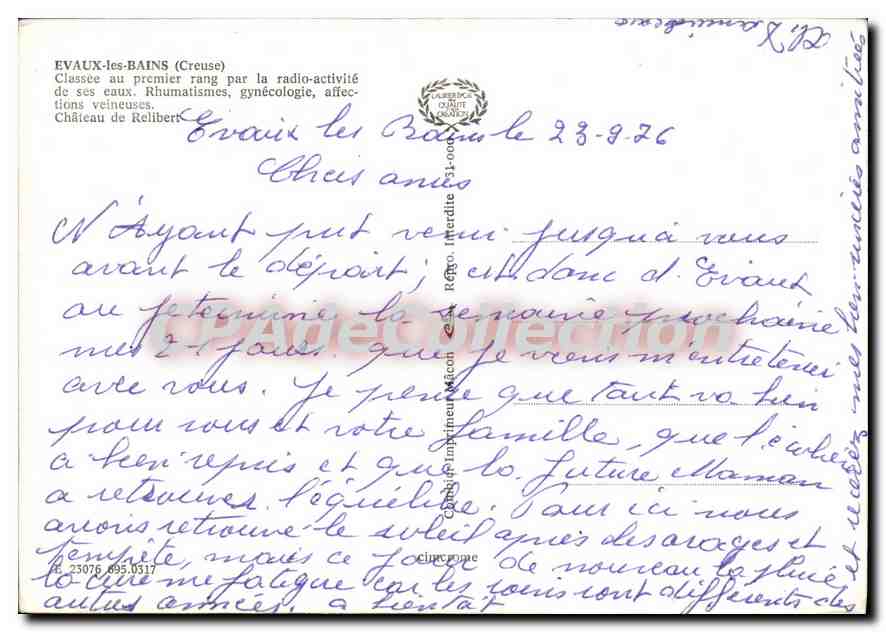 EVAUX-les-BAINS (Creuse)
Classée au premier rang par la radio-activité
de ses eaux. Rhumatismes, gynécologie, affec-
tions veineuses.
Château de Relibert
LAURÉAT DE LA
QUALITÉ
CRÉATION
Evaux les Bains le 23-9-76
Chers amis
N'Ayant put venir jusqu'à vous
avant le départ; c'est donc d'Evaux
ou je termine la semaine prochaine
mes 21 jours que je viens m'entretenir
avec vous. Je pense que tout va bien
pour vous et votre famille, que l'
a bien repris et que la future Maman
a retrouver l'équilibre. Pour ici nous
avons retrouvé le soleil après des orages et
tempête, mais ce jour de nouveau la pluie
la cure me fatigue car les soins sont différents des
autres années, a bientôt
et recevez mes bien sincères amitiés
Combier Imprimeur Mâcon
Repro. Interdite
cimcrome
E 23076 695.0317
CPAdeCollection